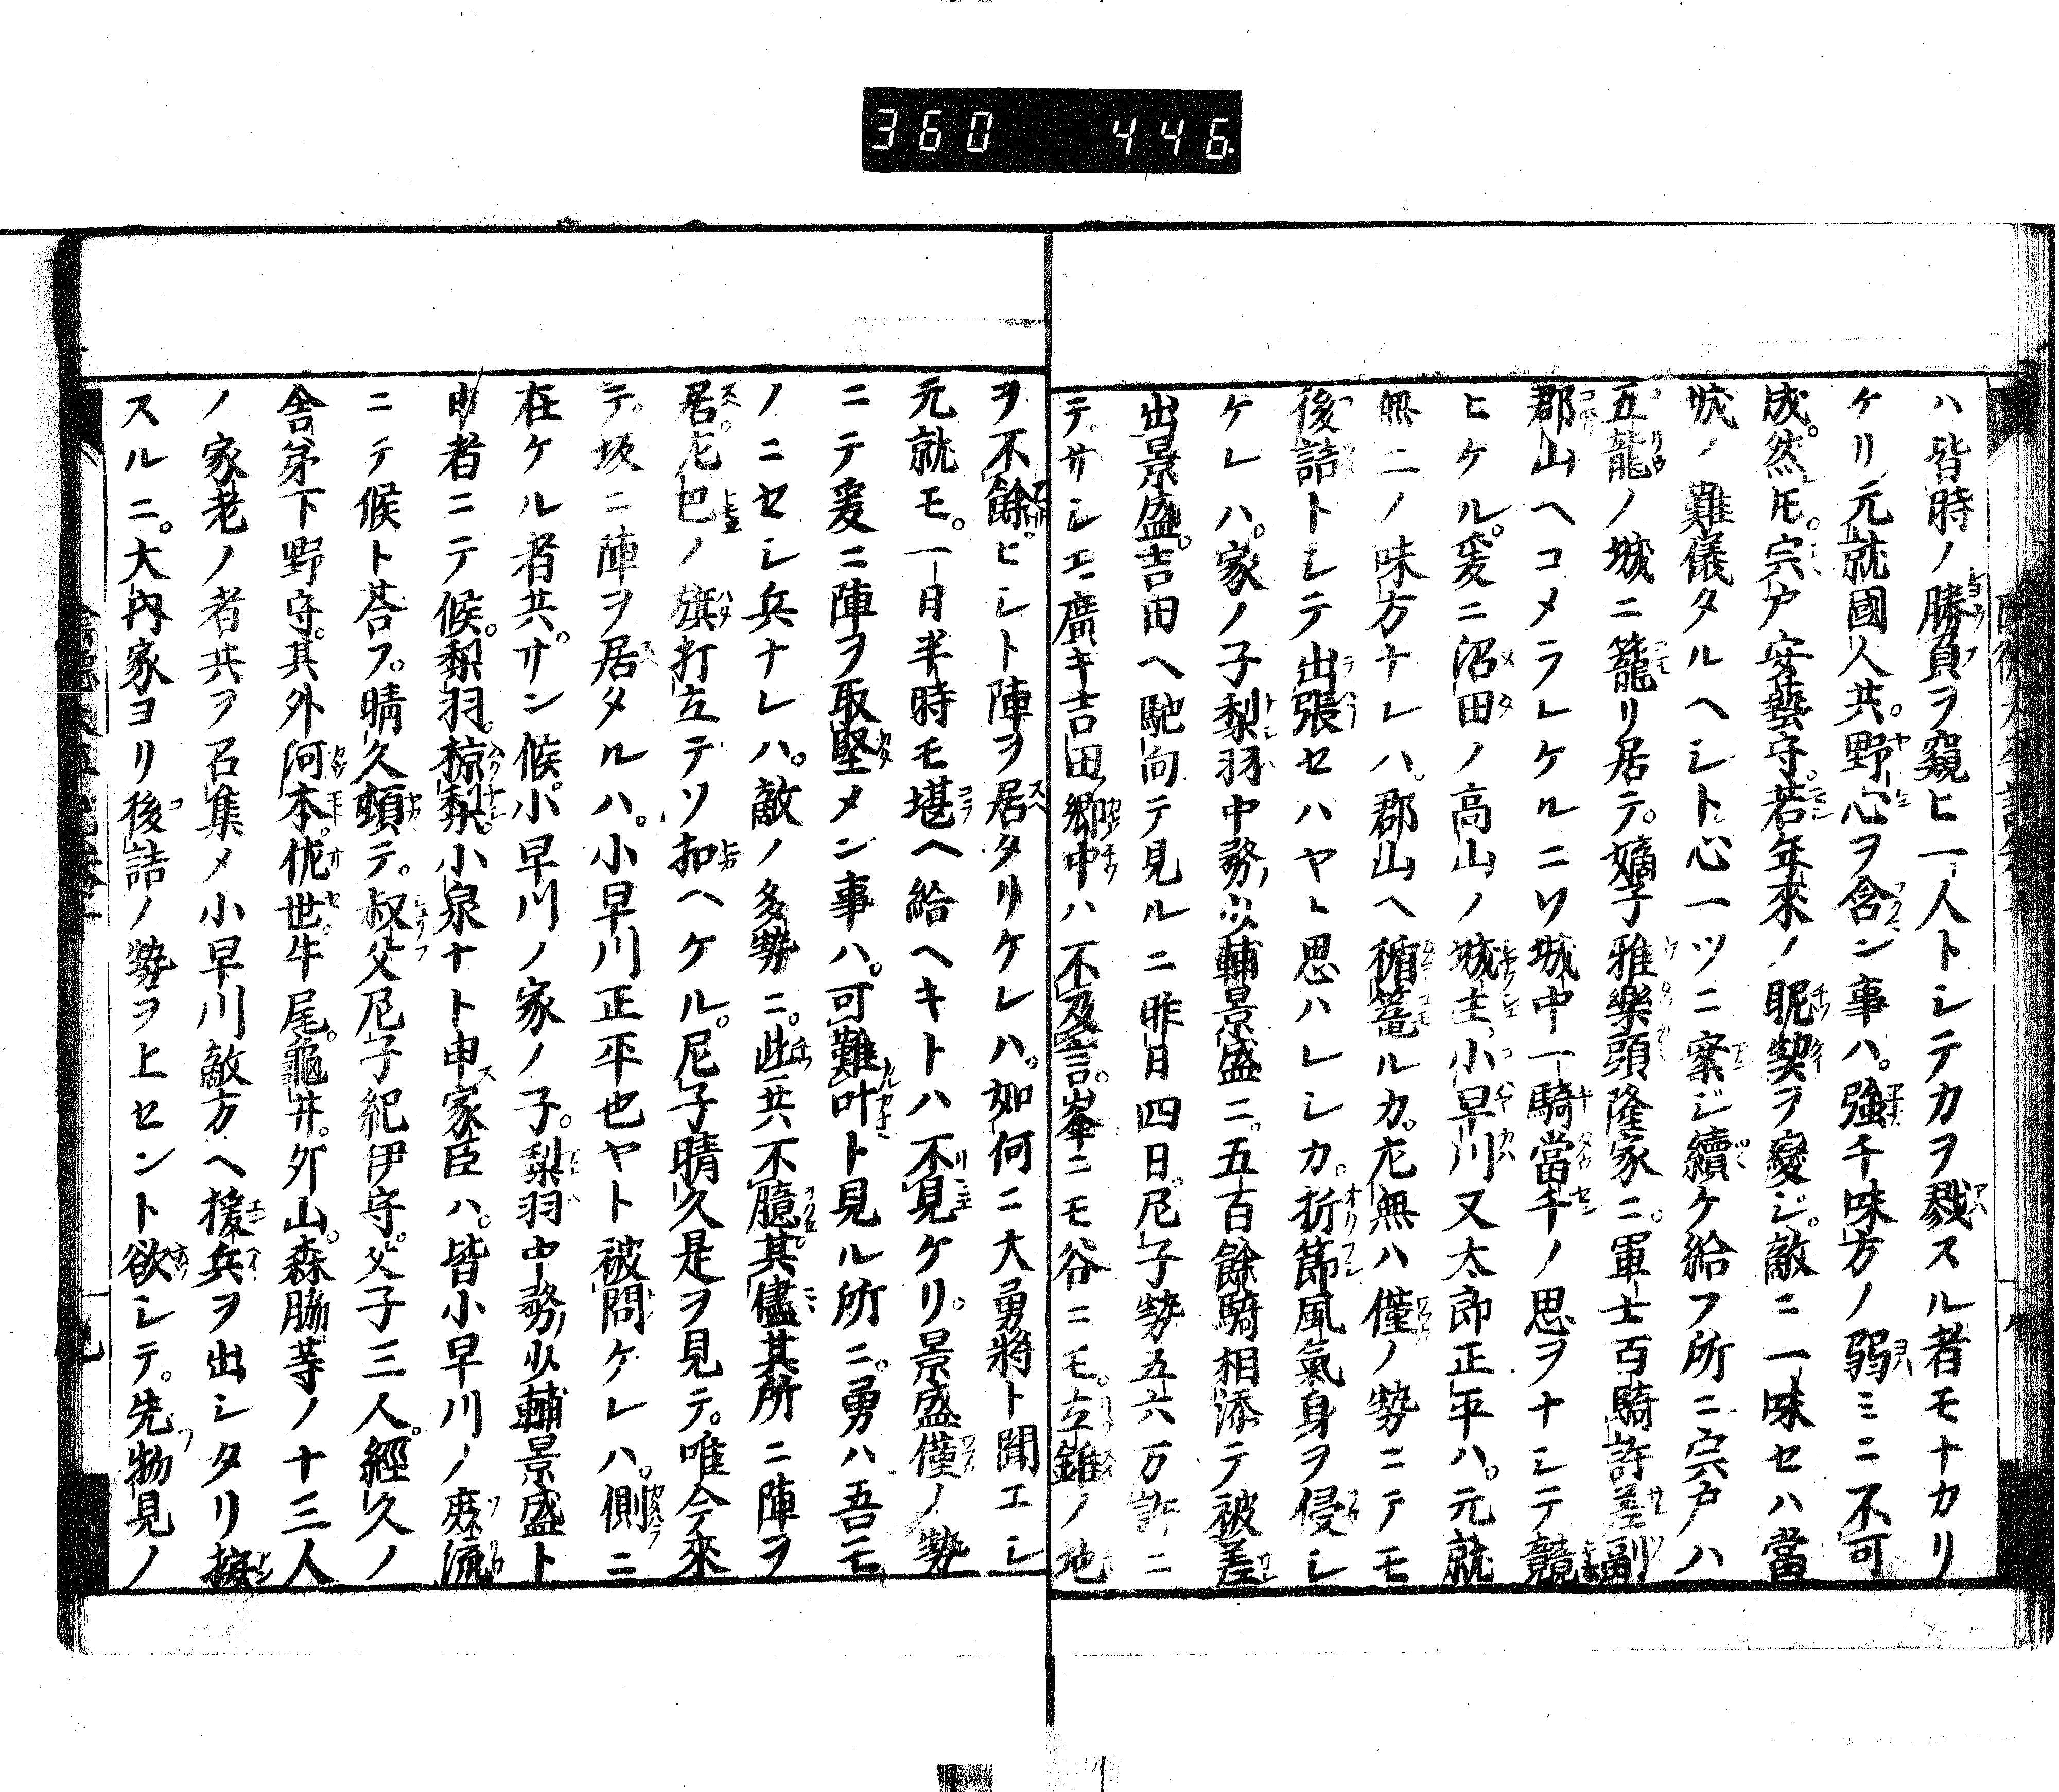 360 446
ハ皆時ノ勝負ヲ窺ヒ一人トシテカヲ戮スル者モナカリ
ケリ元就國人共。野心ヲ含ン事ハ。強千味方ノ弱ミニ不可
成。然㕝。宗戸安藝守。若年來ノ眤契ヲ變ジ。敵ニ一味セハ當
城ノ難儀タルヘシト心一ツニ案ジ續ケ給フ所ニ宍戸ハ
五龍ノ城ニ籠リ居テ。嫡子雅樂頭隆家ニ。軍士百騎許差副
郡山ヘコメラレケルニソ城中一騎當千ノ思ヲナシテ競
ヒケル。爰ニ沼田ノ高山ノ城主。小早川又太郎正平ハ。元就
無二ノ味方ナレハ。郡山ヘ楯篭ルカ。左無ハ僅ノ勢ニテモ
後詰トシテ出張セハヤト思ハレシカ。折節風氣身ヲ侵シ
ケレハ。家ノ子梨羽中務少輔景盛ニ。五百餘騎相添テ被差
出景盛。吉田ヘ馳向テ見ルニ昨日四日。尼子勢五六万許ニ
テ。サシモ廣キ吉田郷中ハ不及言。峯ニモ谷ニモ。立錐ノ地
ヲ不餘ビシト陣ヲ居タリケレハ。如何ニ大勇將ト聞エシ
元就モ。一日半時モ堪ヘ給ヘキトハ不見ケリ。景盛僅ノ勢
ニテ爰ニ陣ヲ取堅メン事ハ。可難叶ト見ル所ニ。勇ハ吾モ
ノニセシ兵ナレハ。敵ノ多勢ニ。此共不臆其儘其所ニ陣ヲ
居。左巴ノ旗打立テソ扣ヘケル。尼子晴久是ヲ見テ。唯今來
テ。坂ニ陣ヲ居タルハ。小早川正平也ヤト被問ケレハ。側ニ
在ケル者共。サン候。小早川ノ家ノ子。梨羽中務少輔景盛ト
申者ニテ候。梨羽。椋梨。小泉ナト申家臣ハ。皆小早川ノ庶流
ニテ候ト荅フ。晴久頓テ。叔父尼子紀伊守。父子三人。經久ノ
舎弟下野守。其外河本。佗世。牛尾。龜井。夘山。森脇等ノ十三人
ノ家老ノ者共ヲ召集メ小早川敵方ヘ援兵ヲ出シタリ按
スルニ。大内家ヨリ後詰ノ勢ヲ上セント欲シテ。先物見ノ